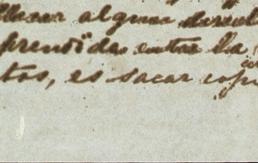 llevar algun
prendida entre la
tos, es sacar copi